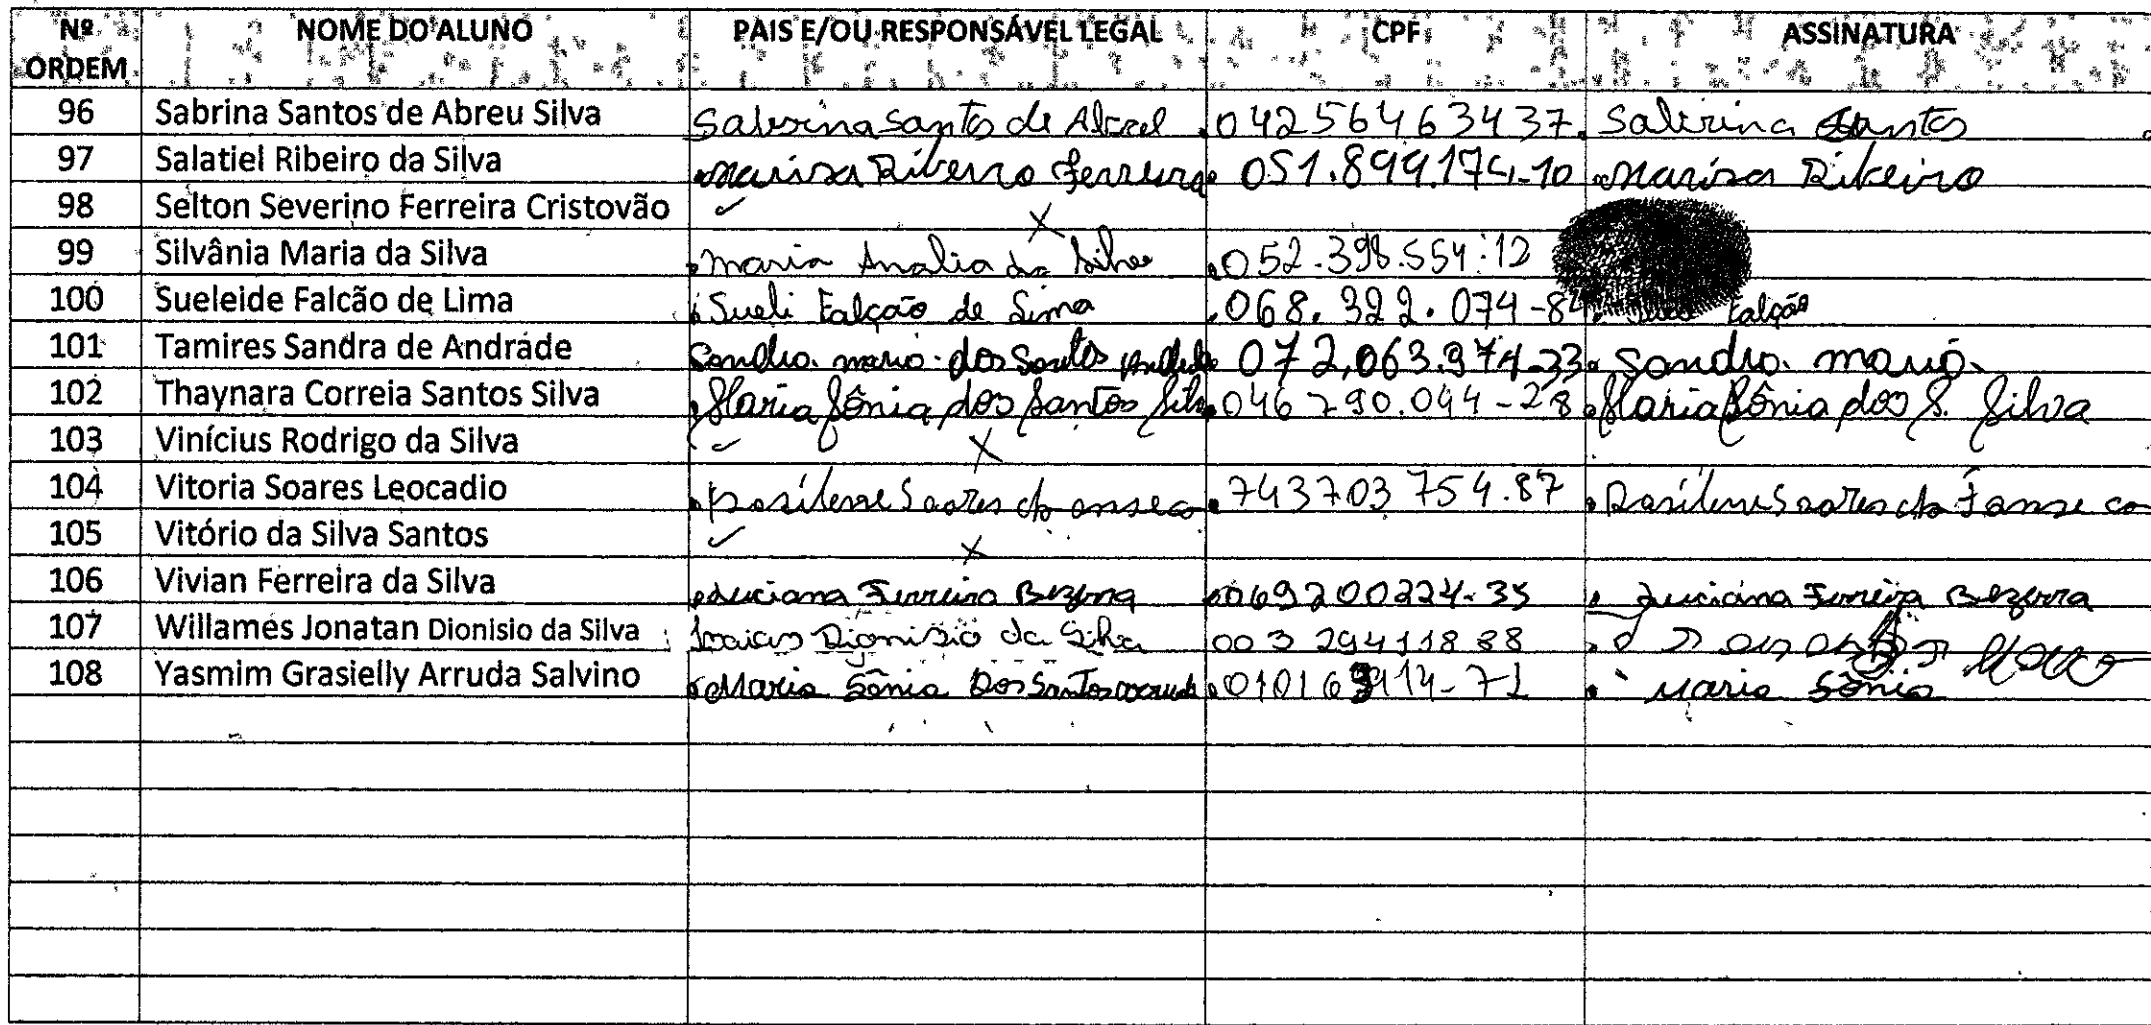 Nº ORDEM NOME DO ALUNO PAIS E/OU RESPONSÁVEL LEGAL CPF ASSINATURA
96 Sabrina Santos de Abreu Silva Sabrina Santos de 04256463437 Sabrina Santos
97 Salatiel Ribeiro da Silva Marisa Ribeiro Ferreira 051.899.174-10 Marisa Ribeiro
98 Selton Severino Ferreira Cristovão ✓ X
99 Silvânia Maria da Silva Maria Analia da Silva 052.398.554-12
100 Sueleide Falcão de Lima Sueli Falcão de Lima 068.322.074-84 Falcão
101 Tamires Sandra de Andrade Sandra maria dos Santos 072,063.974-33 Sandra maria
102 Thaynara Correia Santos Silva Maria Sônia dos Santos Silv 046 790.044-28 Maria Sônia dos S. Silva
103 Vinícius Rodrigo da Silva ✓ X
104 Vitoria Soares Leocadio Rosilene Soares da 743703 754.87 Rosilene Soares da Fonseca
105 Vitório da Silva Santos ✓ X
106 Vivian Ferreira da Silva Luciana Ferreira Bezerra 069200224-35 Luciana Ferreira Bezerra
107 Willames Jonatan Dionisio da Silva Isaias Dionisio da Silva 003 294118 88
108 Yasmim Grasielly Arruda Salvino Maria Sônia Dos Santos Maria Sônia